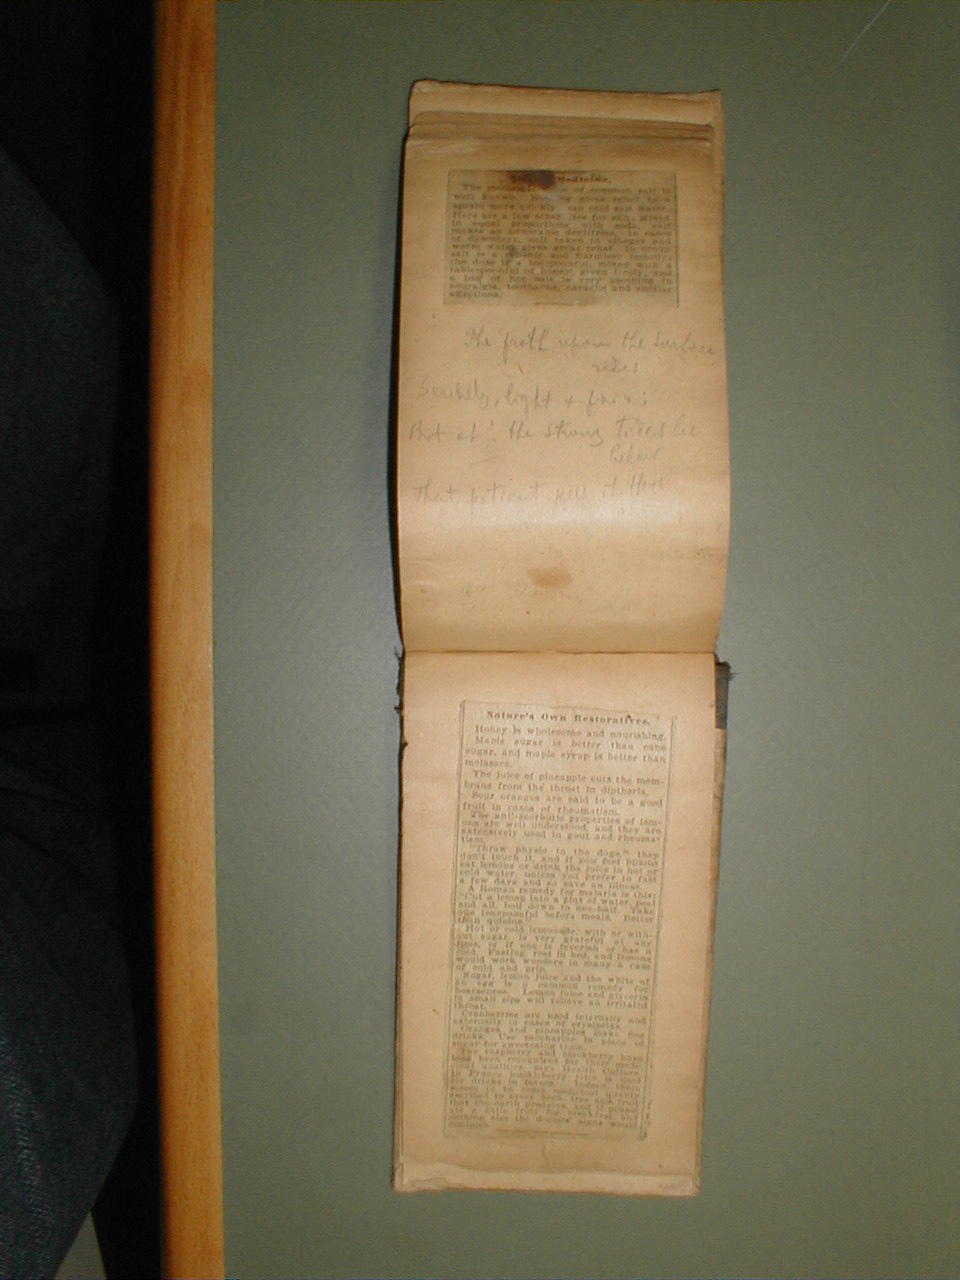 Medicine.
The of common salt is
well known. gives relief to a
sprain more quickly can cold salt water.
Here are a few other for salt: Mixed
in equal proportions with soda, salt
makes an admirable dentifrice. In cases
of dysentery, salt taken in vinegar and
warm water gives great relief. In croup
salt is a and harmless
the dose is a teaspoonful, mixed with a
tablespoonful of honey, given freely, and
a bag of hot salt is very soothing in
neuralgia, toothache, earache and similar
affections.
The froth upon the surface
rides
light +
But ah! the strong tides lie
below
That
Nature's Own Restoratives.
Honey is wholesome and nourishing.
Maple sugar is better than cane
sugar, and maple syrup is better than
molasses.
The juice of pineapple cuts the mem-
brane from the throat in diptheria.
Sour oranges are said to be a good
fruit in cases of rheumatism.
The anti-scorbutic properties of lem-
ons are well understood, and they are
extensively used in gout and rheuma-
tism.
"Throw physic to the dogs," they
don't touch it, and if you feel bilious
eat lemons or drink the juice in hot or
cold water, unless you prefer to fast
a few days and so save an illness.
A Roman remedy for malaria is this:
"Cut a lemon into a pint of water, peel
and all, boil down to one-half. Take
one teaspoonful before meals. Better
than quinine."
Hot or cold lemonade, with or with-
out sugar, is very grateful at any
time, or if one is feverish or has a
cold. Fasting, rest in bed, and lemons
would work wonders in many a case
of cold and grip.
Sugar, lemon juice and the white of
an egg is a common remedy for
hoarseness. Lemon juice and glycerin
in small sips will relieve an irritated
throat.
Cranberries are used internally and
externally in cases of erysipelas.
Oranges and pineapples make fine
drinks. Use saccharine in place of
sugar for sweetening them.
The raspberry and blackberry have
long been recognized for their medi-
cinal qualities, says Health Culture.
In France huckleberry juice is used
for drinks in fevers. Indeed, there
seems to be some medicinal quality
ascribed to every herb, tree and fruit
that the earth produces, and if people
ate a little fruit for breakfast and
nothing else the doctors' signs would
diminish.